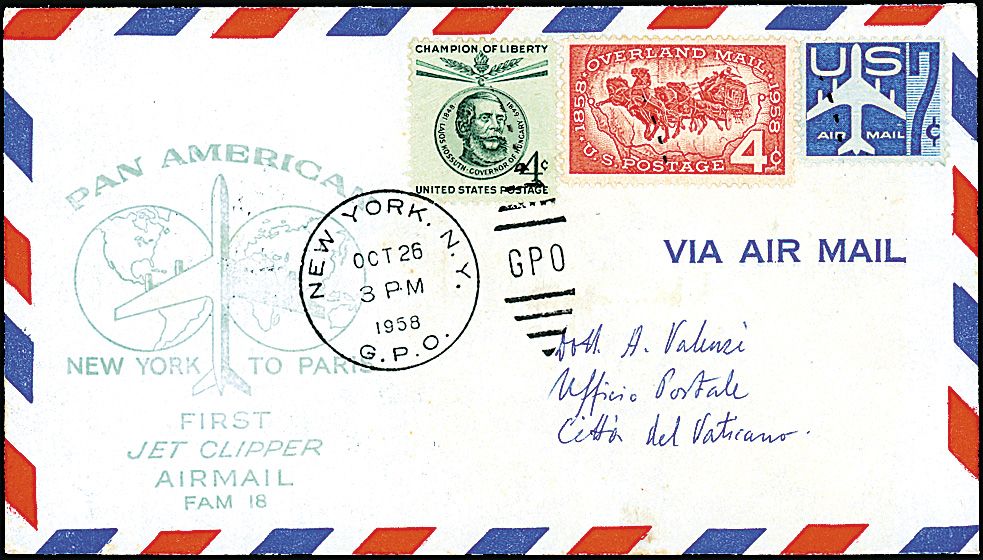 CHAMPION OF LIBERTY
1848 LAJOS KOSSUTH·GOVERNOR OF HUNGARY 1849
4¢
UNITED STATES POSTAGE
1858·OVERLAND MAIL·1958
U.S. POSTAGE 4c
US
AIR MAIL
7¢
PAN AMERICAN
NEW YORK TO PARIS
FIRST
JET CLIPPER
AIRMAIL
FAM 18
NEW YORK, N.Y.
OCT 26
3 PM
1958
G.P.O.
GPO
VIA AIR MAIL
Dott. A. Valensi
Ufficio Postale
Città del Vaticano.